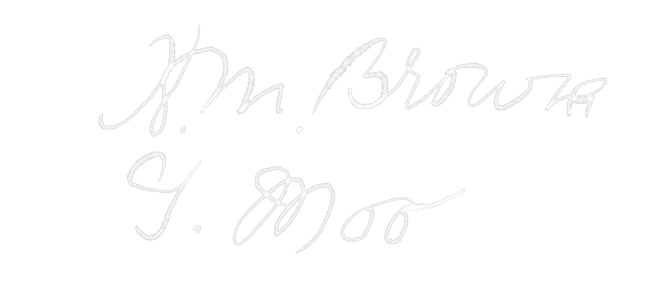 H. M. Brown
G. Moo